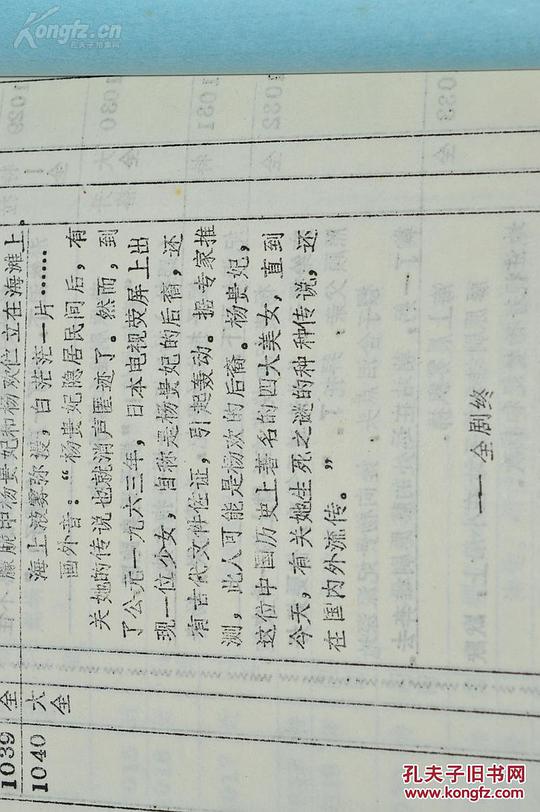 Kongfz.cn
孔夫子旧书网
1039 全 朦胧中杨贵妃和杨欢伫立在海滩上
1040 大全 海上波雾弥漫，白茫茫一片……
画外音。“杨贵妃隐居民间后，有
关她的传说也就消声匿迹了。然而，到
了公元一九六三年，日本电视荧屏上出
现一位少女，自称是杨贵妃的后裔，还
有古代文件佐证，引起轰动。据专家推
测，此人可能是杨欢的后裔。杨贵妃，
这位中国历史上著名的四大美女，直到
今天，有关她生死之谜的种种传说，还
在国内外流传。”
——全剧终
孔夫子旧书网
KONGFZ.COM